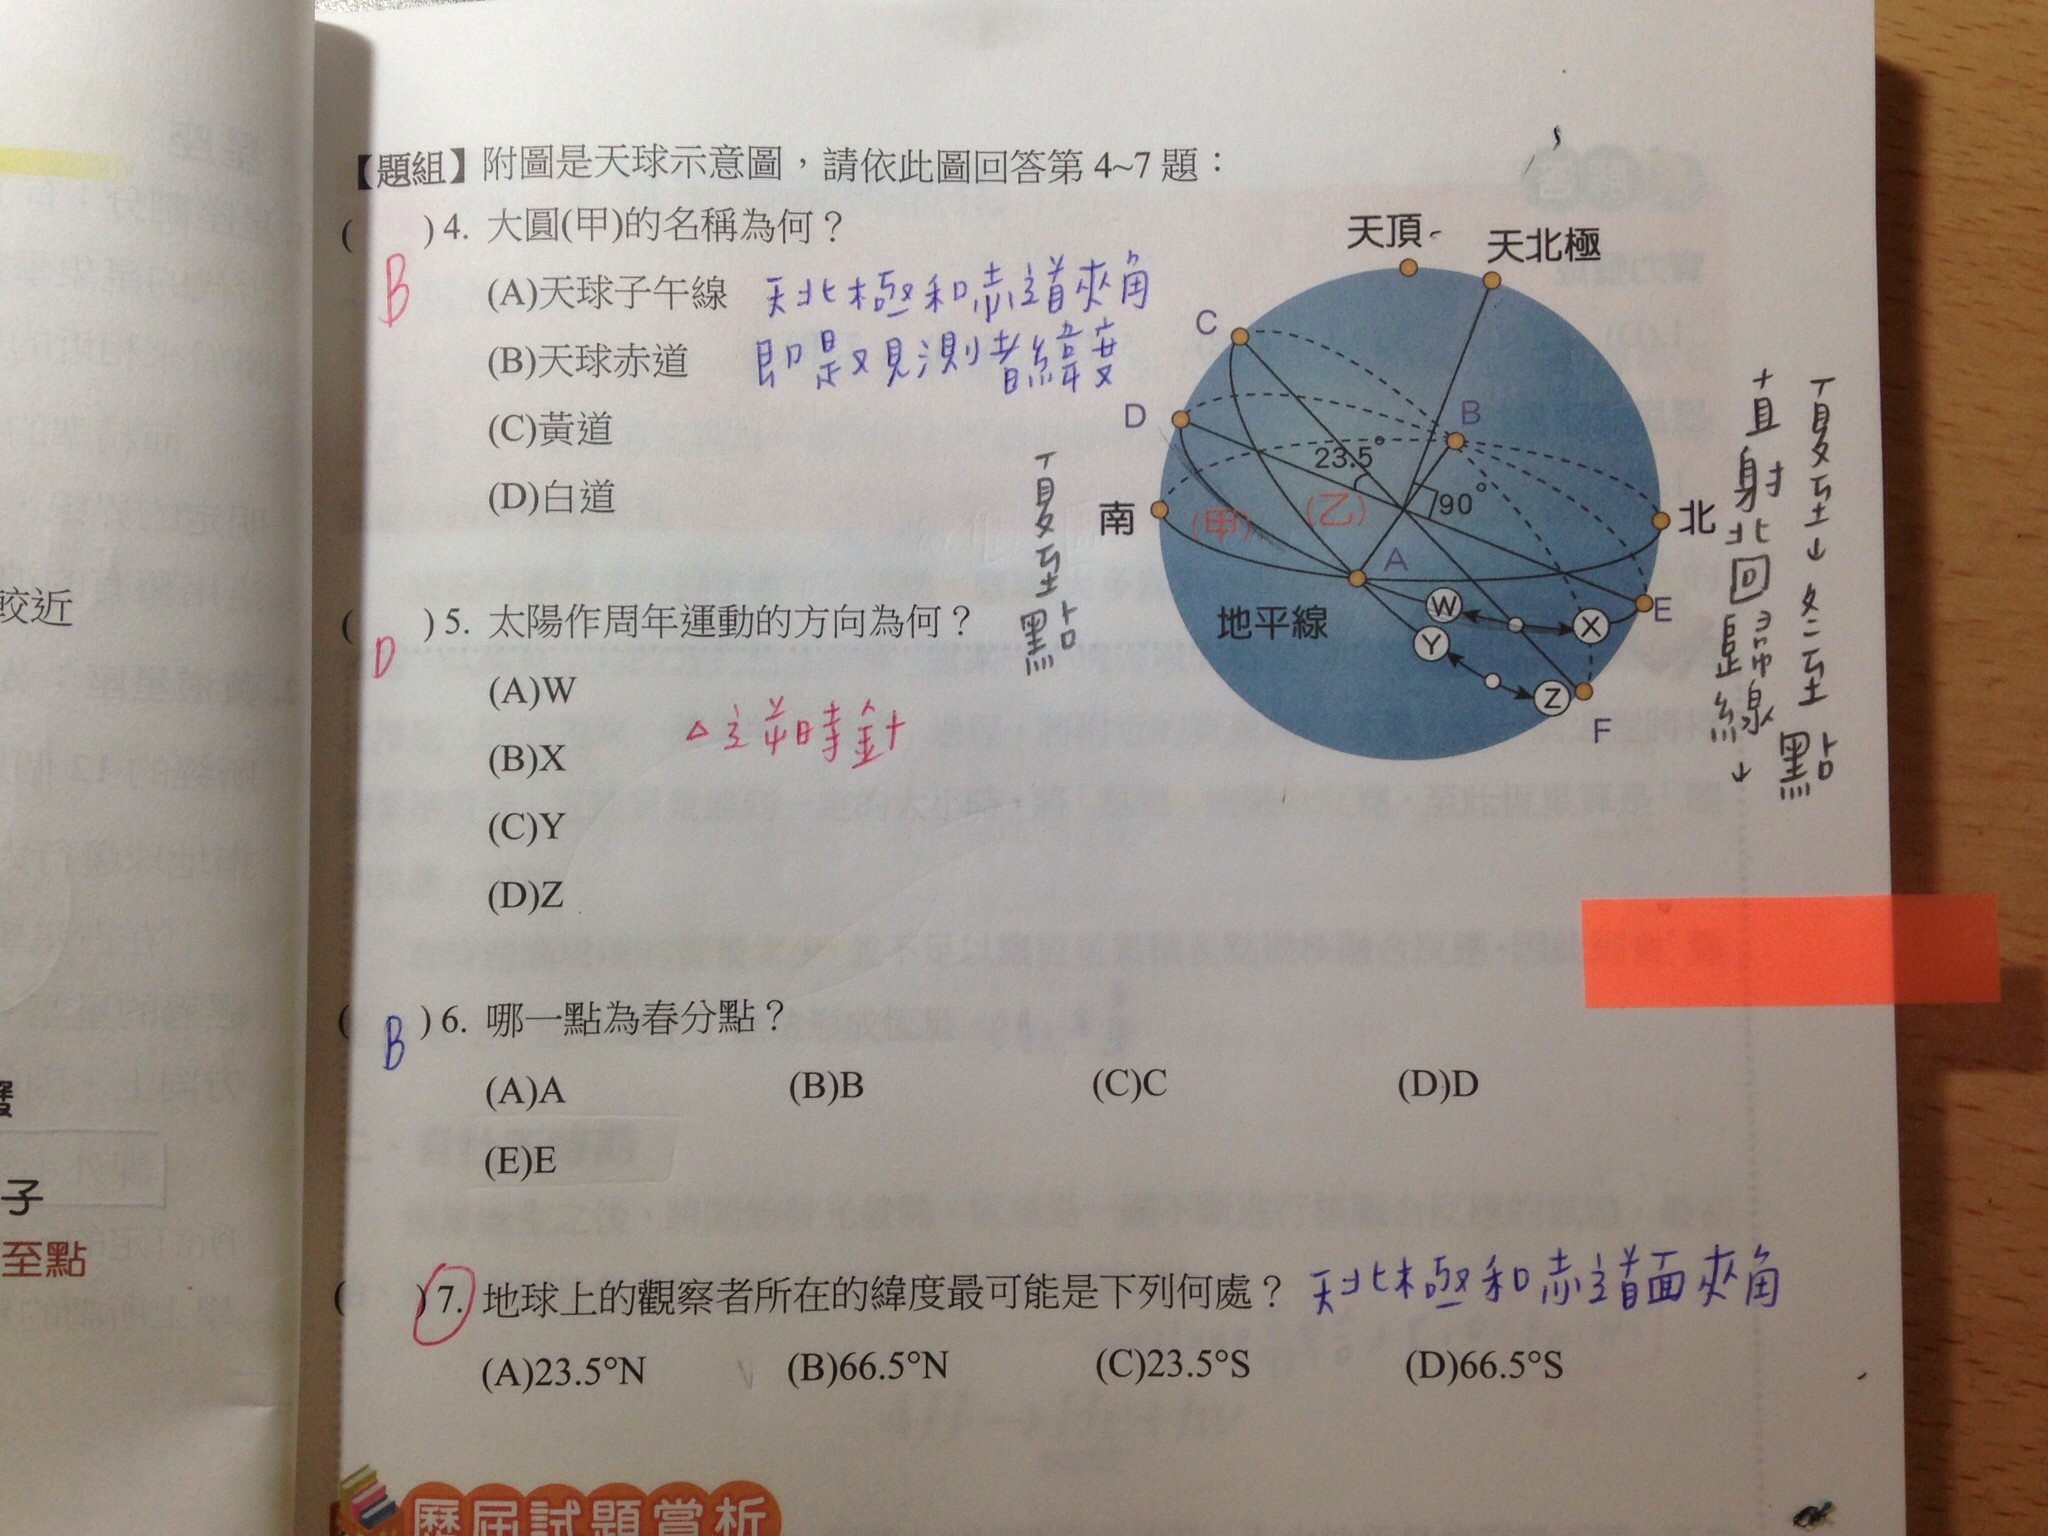 【題組】附圖是天球示意圖，請依此圖回答第 4~7 題：
( B ) 4. 大圓(甲)的名稱為何？
(A)天球子午線 天北極和赤道夾角
(B)天球赤道 即是觀測者緯度
(C)黃道
(D)白道
天頂
天北極
C
D
B
23.5°
90°
(甲)
(乙)
南
北
A
地平線
W
X
E
Y
Z
F
夏至點
夏至↓冬至點
直射北回歸線↓
( D ) 5. 太陽作周年運動的方向為何？
(A)W
(B)X
△逆時針
(C)Y
(D)Z
( B ) 6. 哪一點為春分點？
(A)A (B)B (C)C (D)D
(E)E
( ) 7. 地球上的觀察者所在的緯度最可能是下列何處？ 天北極和赤道面夾角
(A)23.5°N (B)66.5°N (C)23.5°S (D)66.5°S
歷屆試題賞析
較近
子
至點